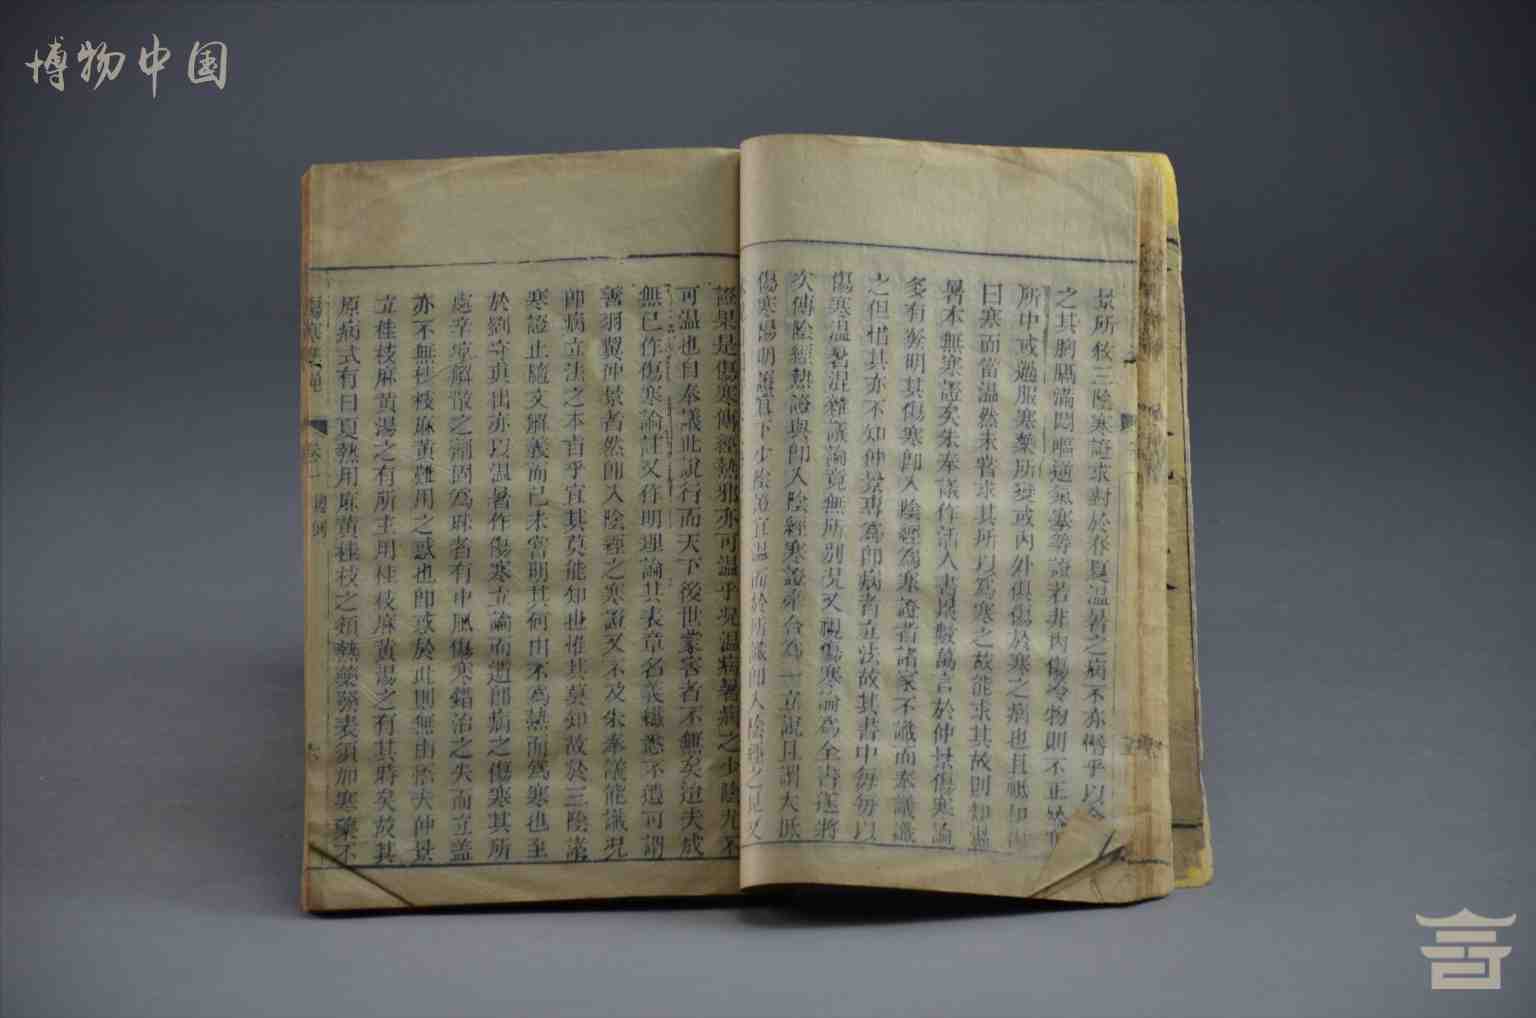 博物中国
景所敘三陰寒證求對於春夏溫暑之病不亦僭乎以
之其胸膈滿悶嘔逆氣塞等證若非內傷冷物則不正
所中或過服寒藥所變或內外俱傷於寒之病也且祗知
曰寒而當溫然未嘗求其所以為寒之故能求其故則知溫
暑本無寒證矣朱奉議作活人書累數萬言於仲景傷寒論
多有發明其傷寒即入陰經為寒證者諸家不識而奉議識
之但惜其亦不知仲景專為即病者立法故其書中每每以
傷寒溫暑混雜議論竟無所別況又視傷寒論為全書遂將
次傳陰經熱證與即入陰經寒證牽合為一立說且謂大抵
傷寒陽明證宜下少陰證宜溫而於所識即入陰經之見又
證果是傷寒傳經熱邪亦可溫乎況溫病暑病之少陰尤不
可溫也自奉議此說行而天下後世蒙害者不無矣迨夫成
無已作傷寒論註又作明理論其表章名義纖悉不遺可謂
善羽翼仲景者然即入陰經之寒證又不及朱奉議能識況
即病立法之本旨乎宜其莫能知也惟其莫知故於三陰諸
寒證止隨文解義而已未嘗明其何由不為熱而為寒也至
於劉守真出亦以溫暑作傷寒立論而遺即病之傷寒其所
處辛涼解散之劑固為昧者有中風傷寒錯治之失而立蓋
亦不無桂枝麻黃難用之惑也即或於此則無由悟夫仲景
立桂枝麻黃湯之有所主用桂枝麻黃湯之有其時矣故其
原病式有曰夏熱用麻黃桂枝之類熱藥發表須加寒藥不